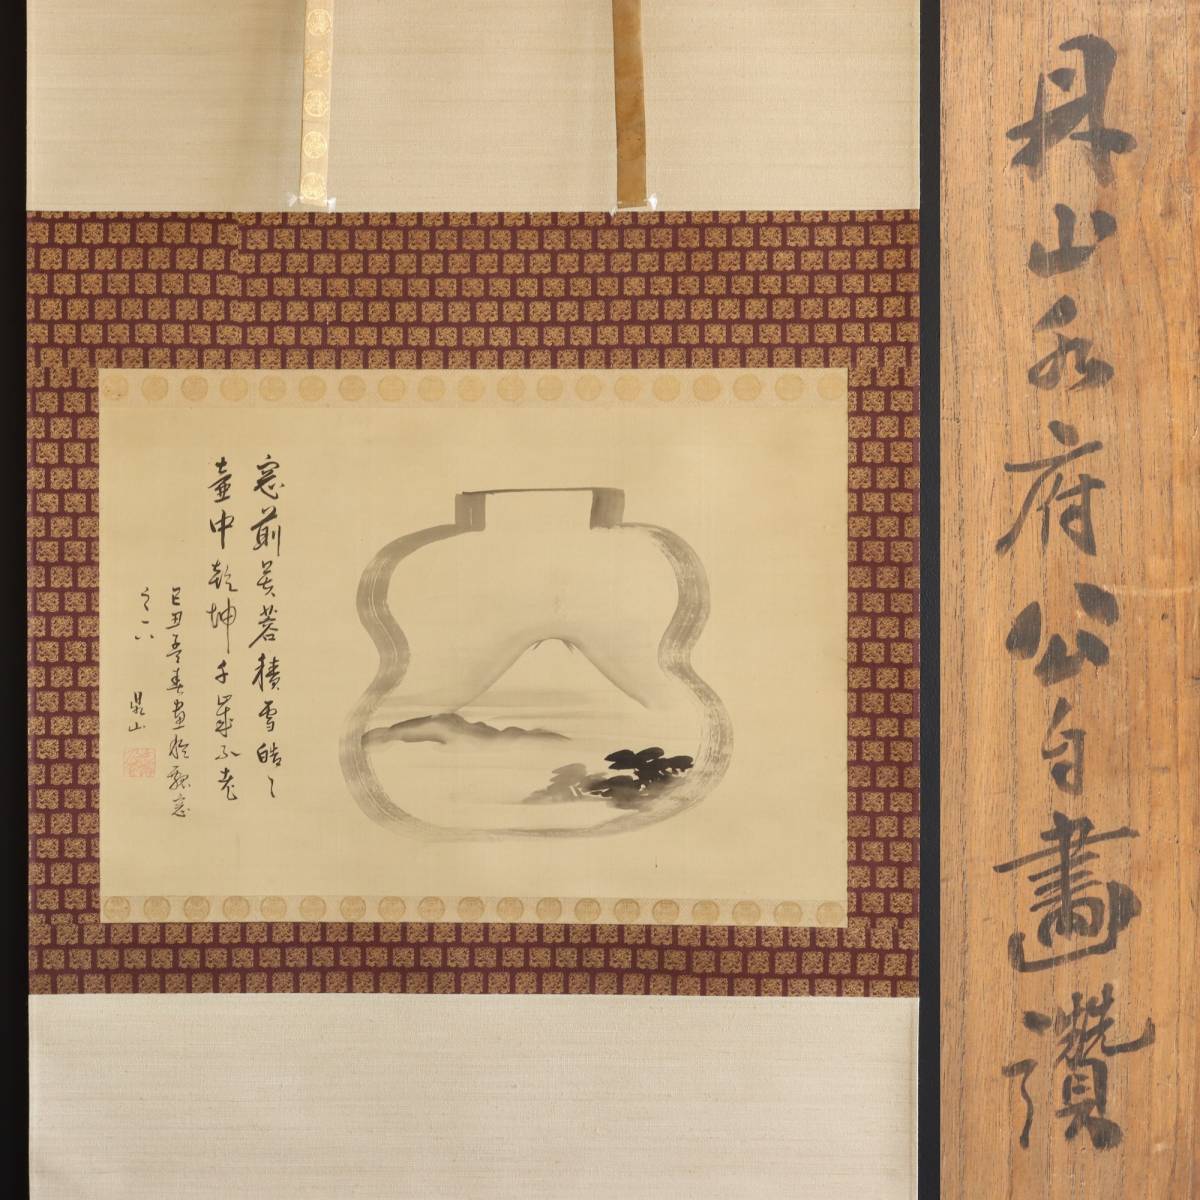 丹山水府公自畫讚
窓前芙蓉積雪皓〻
壺中乾坤千歳不老
己丑孟春畫於窓
之下
景山